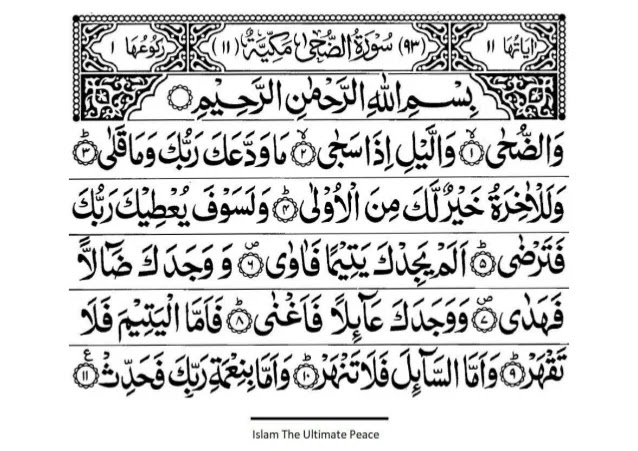 اٰیَاتُهَا ١١ (٩٣) سُوْرَةُ الضُّحٰى مَكِّيَّةٌ (١١) رُكُوْعُهَا ١
بِسْمِ اللّٰهِ الرَّحْمٰنِ الرَّحِيْمِ
وَالضُّحٰى ۙ﴿١﴾ وَالَّيْلِ اِذَا سَجٰى ۙ﴿٢﴾ مَا وَدَّعَكَ رَبُّكَ وَمَا قَلٰى ؕ﴿٣﴾
وَلَلْاٰخِرَةُ خَيْرٌ لَّكَ مِنَ الْاُوْلٰى ؕ﴿٤﴾ وَلَسَوْفَ يُعْطِيْكَ رَبُّكَ
فَتَرْضٰى ؕ﴿٥﴾ اَلَمْ يَجِدْكَ يَتِيْمًا فَاٰوٰى ۪﴿٦﴾ وَ وَجَدَكَ ضَآلًّا
فَهَدٰى ۪﴿٧﴾ وَ وَجَدَكَ عَآئِلًا فَاَغْنٰى ؕ﴿٨﴾ فَاَمَّا الْيَتِيْمَ فَلَا
تَقْهَرْ ؕ﴿٩﴾ وَاَمَّا السَّآئِلَ فَلَا تَنْهَرْ ؕ﴿١٠﴾ وَاَمَّا بِنِعْمَةِ رَبِّكَ فَحَدِّثْ ﴿١١﴾ ع
Islam The Ultimate Peace